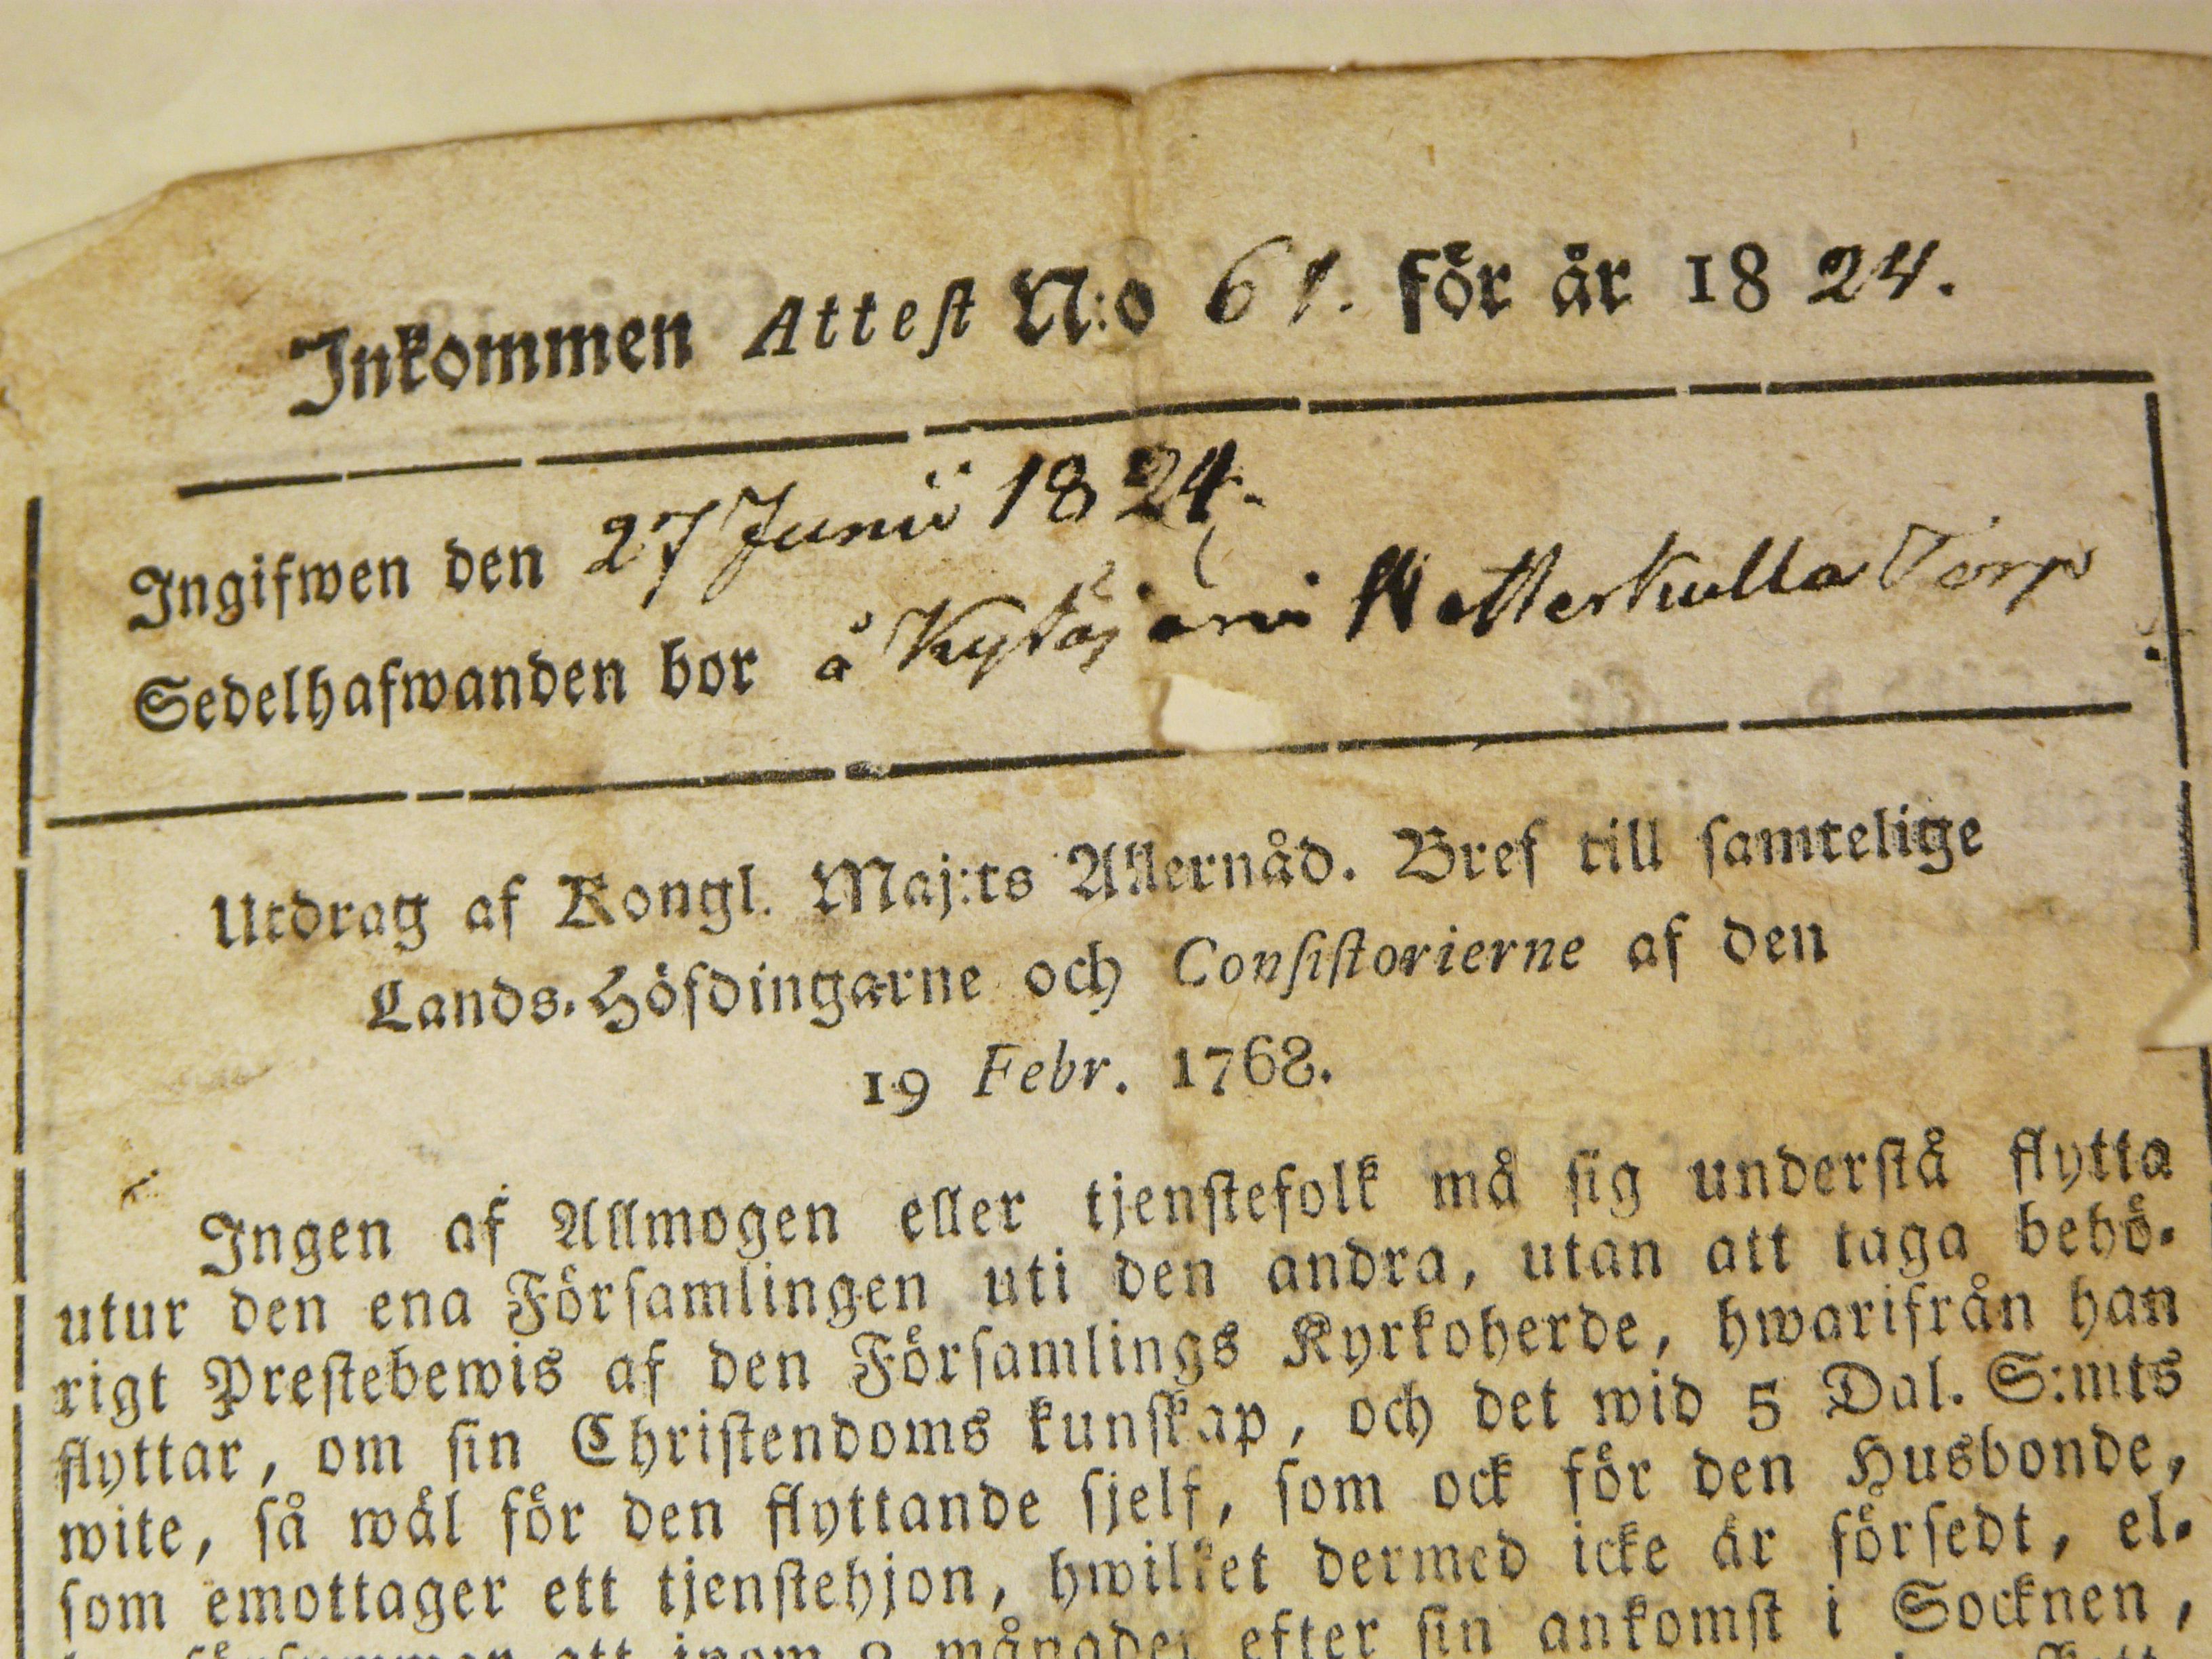 Inkommen Attest N:o 61. för år 1824.
Ingifwen den 27 Junii 1824.
Sedelhafwanden bor å Kytäjärvi Torp
Utdrag af Kongl. Maj:ts Allernåd. Bref till samtelige
Lands-Höfdingarne och Consistorierne af den
19 Febr. 1768.
Ingen af Allmogen eller tjenstefolk må sig understå flytta
utur den ena Församlingen uti den andra, utan att taga behö-
rigt Prestebewis af den Församlings Kyrkoherde, hwarifrån han
flyttar, om sin Christendoms kunskap, och det wid 5 Dal. S:mts
wite, så wäl för den flyttande sjelf, som ock för den Husbonde,
som emottager ett tjenstehjon, hwilket dermed icke är försedt, el-
att inom månader efter sin ankomst i Socknen,